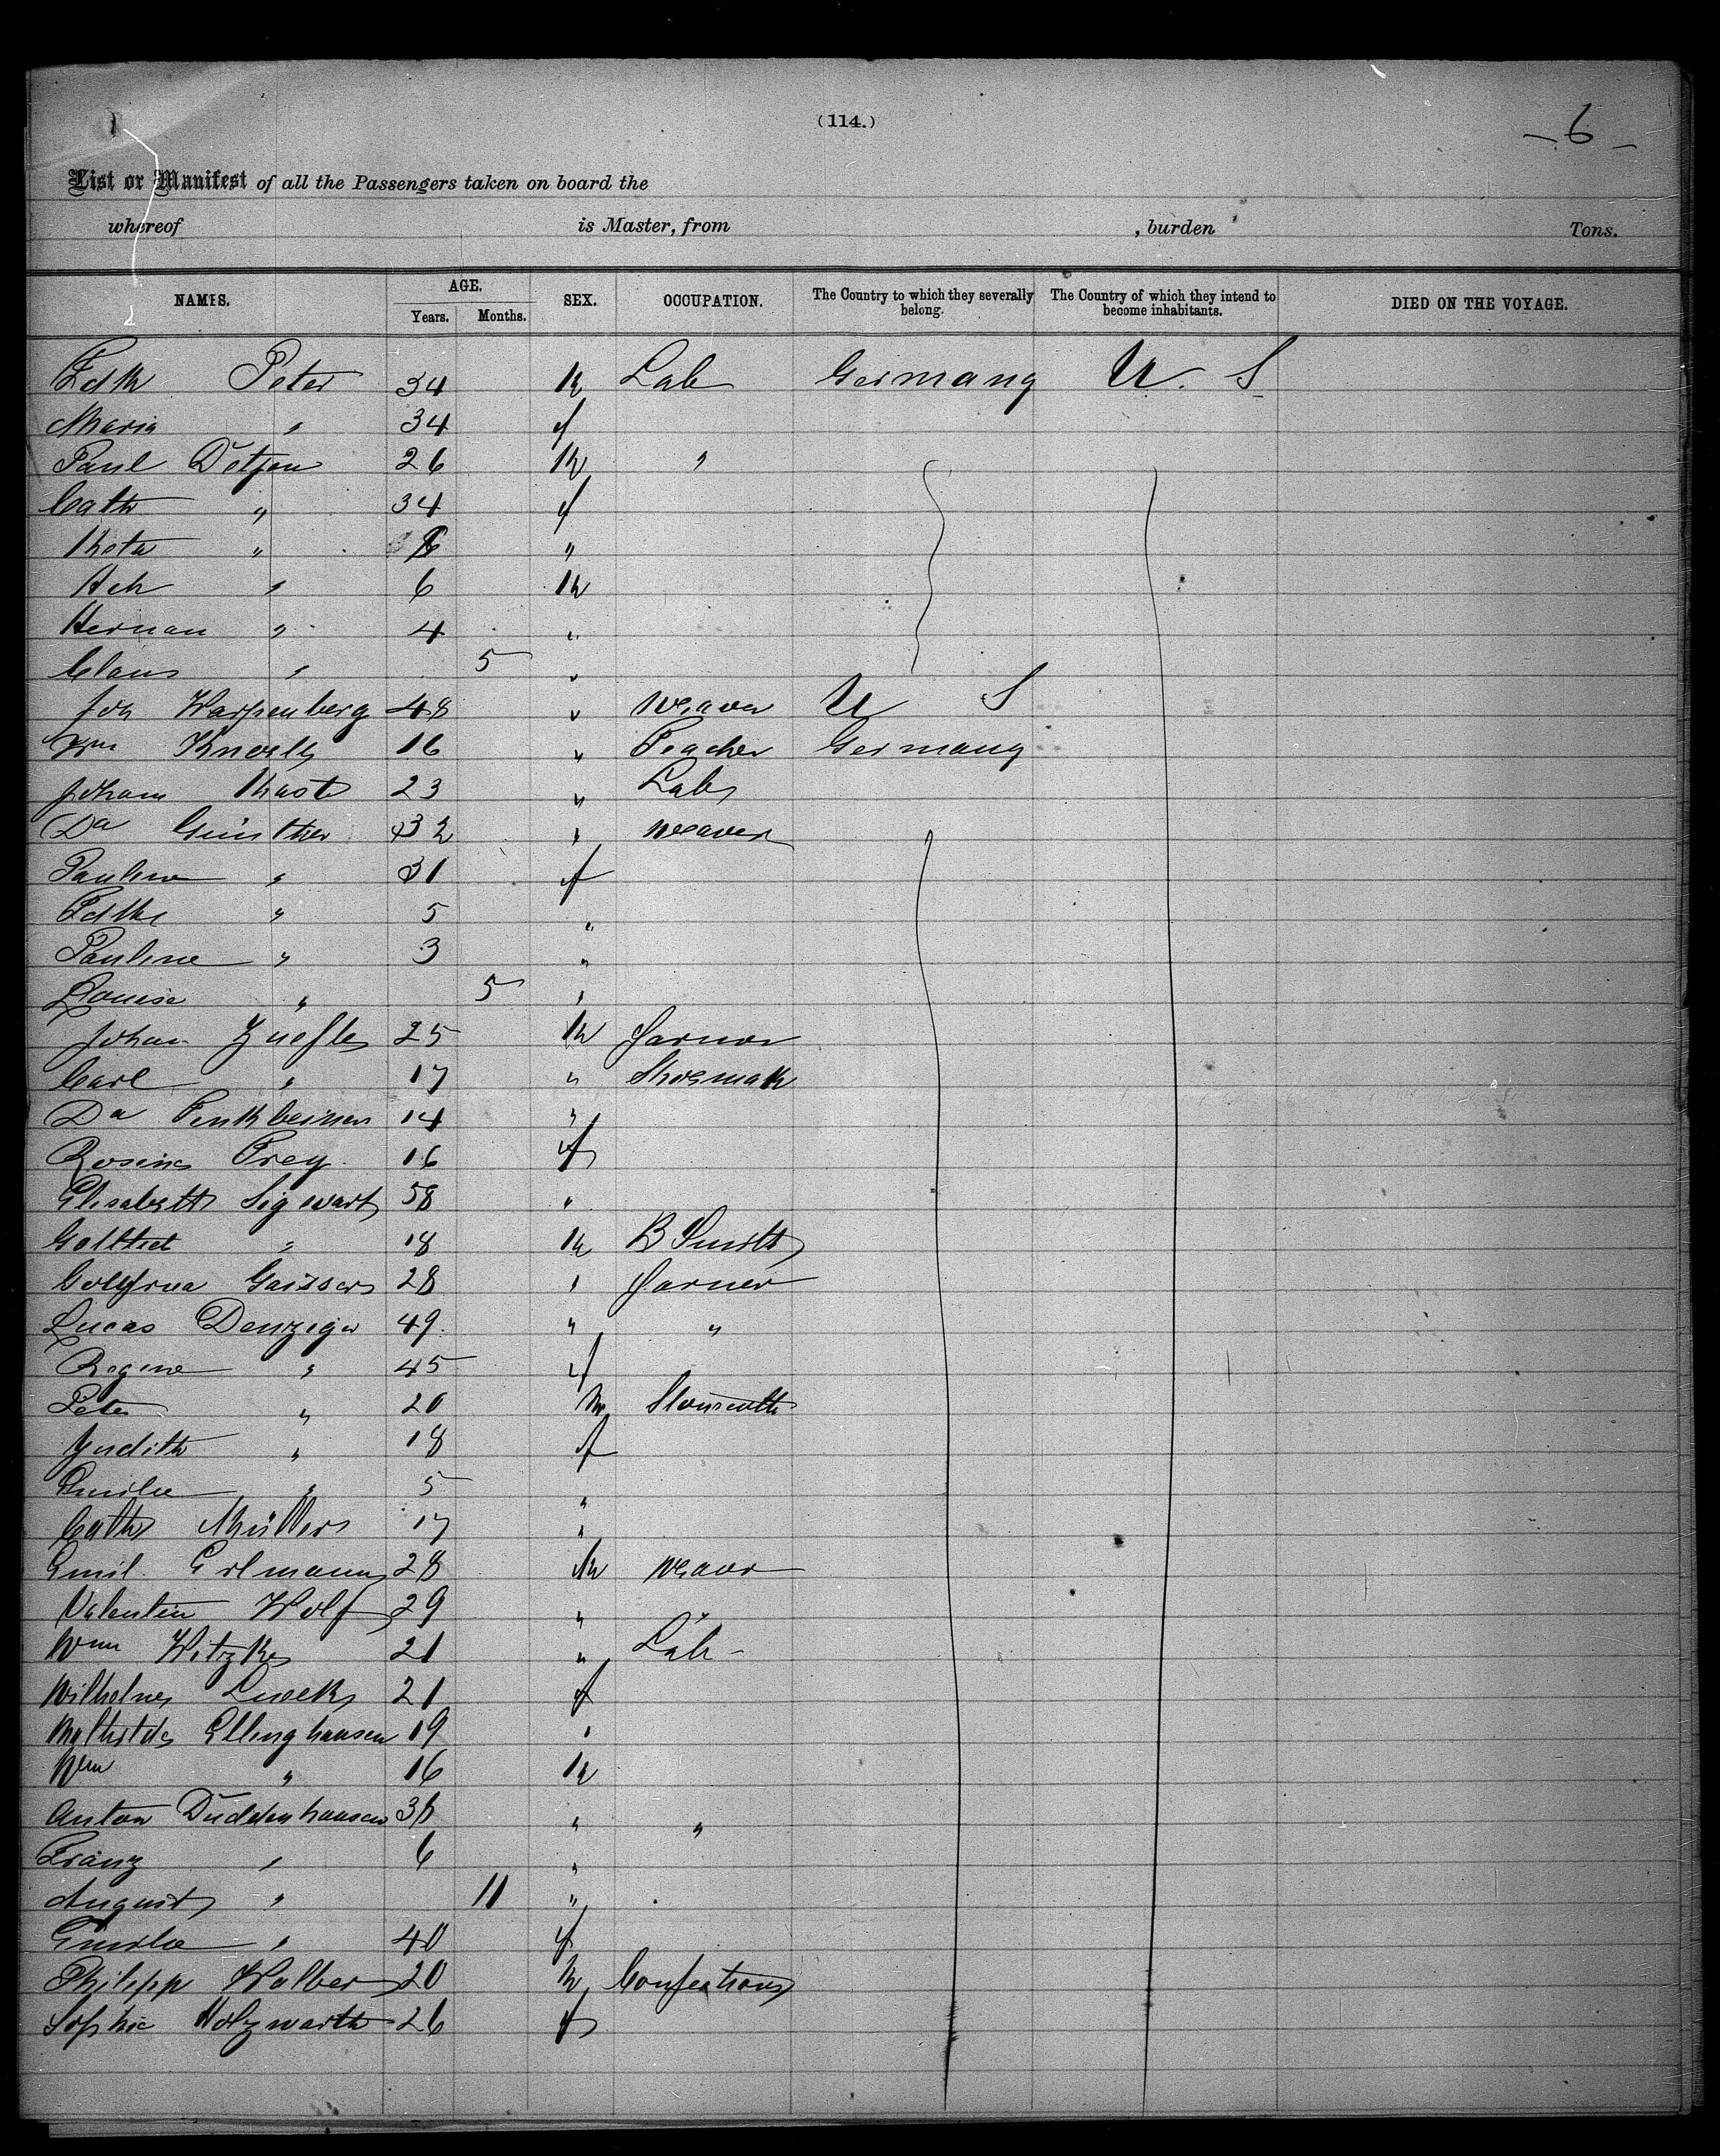 (114.)
- 6 -
List or Manifest of all the Passengers taken on board the
whereof is Master, from , burden Tons.
NAMES. AGE. Years. Months. SEX. OCCUPATION. The Country to which they severally belong. The Country of which they intend to become inhabitants. DIED ON THE VOYAGE.
Peter 34 M Lab Germany U. S
Maria " 34 f
Paul Detjen 26 M "
Cath " 34 f
Meta " "
Hch " 6 M
Herman " 4 "
Claus " 5 "
Joh Warpenberg 48 " Weaver U S
Wm 16 " Teacher Germany
Johann Mast 23 " Lab
Da Günther 32 " Weaver
Pauline " 31 f
" 5 "
Pauline " 3 "
Louise " 5 "
Johan Zuefle 25 M Farmer
Carl " 17 " Shoemak
Da Finkbeiner 14 "
Rosina Frey 16 f
Elisabeth Sigwart 58 "
" 18 M B Smith
Gaisser 28 " Farmer
Lucas Denziger 49 " "
Regine " 45 f
Peter " 20 M
Judith " 18 f
Emilie " 5 "
Cath Müller 17 "
Emil Erlmann 28 M Weaver
Valentin Wolf 29 " "
Wm Witzke 21 " Lab
Lueck 21 f
Mathilde Ellinghausen 19 "
Wm " 16 M
Anton Duddenhausen " "
Franz " 6 "
August " 11 "
Emilie " 40 f
Philipp Walber 20 M
Sophie Holzwarth 26 f